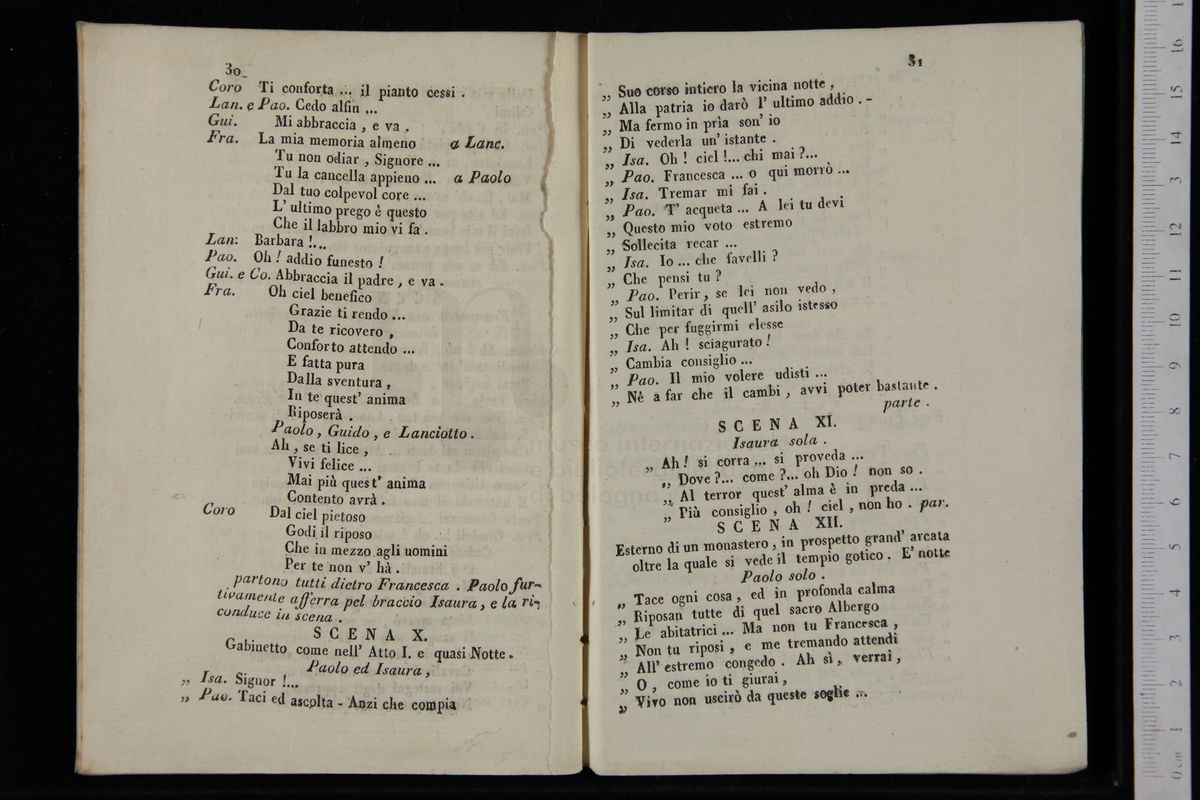 30
Coro Ti conforta ... il pianto cessi .
Lan. e Pao. Cedo alfin ...
Gui. Mi abbraccia , e va .
Fra. La mia memoria almeno a Lanc.
Tu non odiar , Signore ...
Tu la cancella appieno ... a Paolo
Dal tuo colpevol core ...
L' ultimo prego è questo
Che il labbro mio vi fa .
Lan: Barbara !...
Pao. Oh ! addio funesto !
Gui. e Co. Abbraccia il padre , e va .
Fra. Oh ciel benefico
Grazie ti rendo ...
Da te ricovero ,
Conforto attendo ...
E fatta pura
Dalla sventura ,
In te quest' anima
Riposerà .
Paolo , Guido , e Lanciotto .
Ah , se ti lice ,
Vivi felice ...
Mai più quest' anima
Contento avrà .
Coro Dal ciel pietoso
Godi il riposo
Che in mezzo agli uomini
Per te non v' hà .
partono tutti dietro Francesca . Paolo fur-
tivamente afferra pel braccio Isaura, e la ri-
conduce in scena .
SCENA X.
Gabinetto come nell' Atto I. e quasi Notte .
Paolo ed Isaura ,
„ Isa. Signor !...
„ Pao. Taci ed ascolta - Anzi che compia
31
„ Suo corso intiero la vicina notte ,
„ Alla patria io darò l' ultimo addio . -
„ Ma fermo in prìa son' io
„ Di vederla un' istante .
„ Isa. Oh ! ciel !... chi mai ?...
„ Pao. Francesca ... o qui morrò ...
„ Isa. Tremar mi fai .
„ Pao. T' acqueta ... A lei tu devi
„ Questo mio voto estremo
„ Sollecita recar ...
„ Isa. Io ... che favelli ?
„ Che pensi tu ?
„ Pao. Perir, se lei non vedo ,
„ Sul limitar di quell' asilo istesso
„ Che per fuggirmi elesse
„ Isa. Ah ! sciagurato !
„ Cambia consiglio ...
„ Pao. Il mio volere udisti ...
„ Nè a far che il cambi , avvi poter bastante .
parte .
SCENA XI.
Isaura sola .
„ Ah ! si corra ... si proveda ...
„ Dove ?... come ?... oh Dio ! non so .
„ Al terror quest' alma è in preda ...
„ Più consiglio , oh ! ciel , non ho . par.
SCENA XII.
Esterno di un monastero , in prospetto grand' arcata
oltre la quale si vede il tempio gotico . E' notte
Paolo solo .
„ Tace ogni cosa , ed in profonda calma
„ Riposan tutte di quel sacro Albergo
„ Le abitatrici ... Ma non tu Francesca ,
„ Non tu riposi , e me tremando attendi
„ All' estremo congedo . Ah sì , verrai ,
„ O , come io ti giurai ,
„ Vivo non uscirò da queste soglie ...